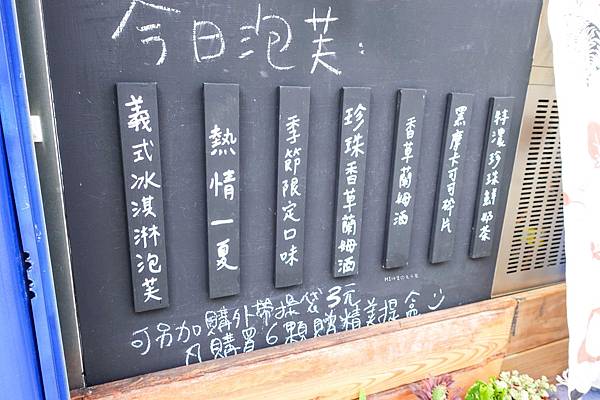 今日泡芙:
義式冰淇淋泡芙
熱情一夏
季節限定口味
珍珠香草蘭姆酒
香草蘭姆酒
黑摩卡可可碎片
特濃珍珠鮮奶茶
可另加購外帶提袋3元
凡購買6顆贈精美提盒